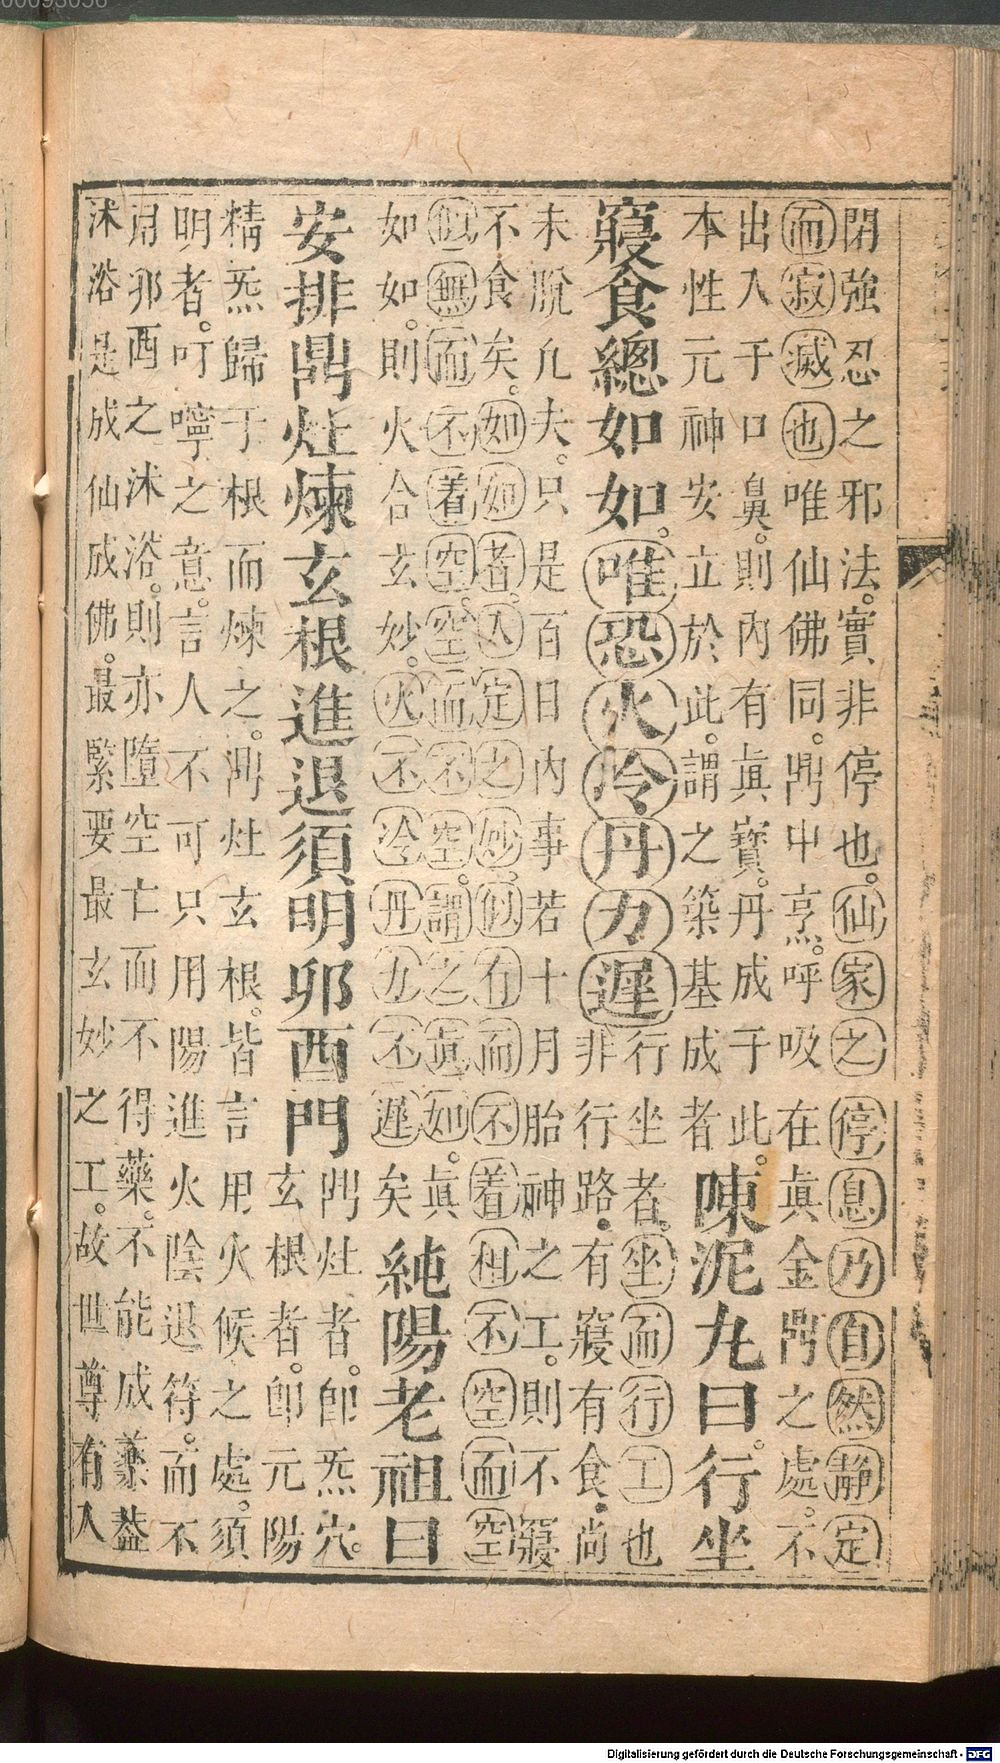 閉強忍之邪法。實非停也。仙家之停息乃自然靜定
而寂滅也唯仙佛同。鼎中烹。呼吸在眞金鼎之處。不
出入于口鼻。則內有眞寶。丹成于此。
本性元神安立於此。謂之築基成者
陳泥丸曰。行坐
寢食總如如。唯恐火冷丹力遲
行坐者。坐而行工也
非行路。有寢有食。尚
未脫凡夫。只是百日內事若十月胎神之工。則不寢
不食矣。如如者。入定之妙。似有而不着相不空而空
似無而不着空。空而不空。謂之眞如。眞
如如。則火合玄妙。火不冷丹力不遲矣
純陽老祖曰
安排鼎灶煉玄根進退須明卯酉門
鼎灶者。即炁穴。
玄根者。即元陽
精炁歸于根而煉之。鼎灶玄根。皆言用火候之處。須
明者。叮嚀之意。言人不可只用陽進火陰退符。而不
用卯酉之沐浴。則亦墮空亡而不得藥。不能成藥。蓋
沐浴是成仙成佛。最緊要最玄妙之工。故世尊有入
Digitalisierung gefördert durch die Deutsche Forschungsgemeinschaft - DFG